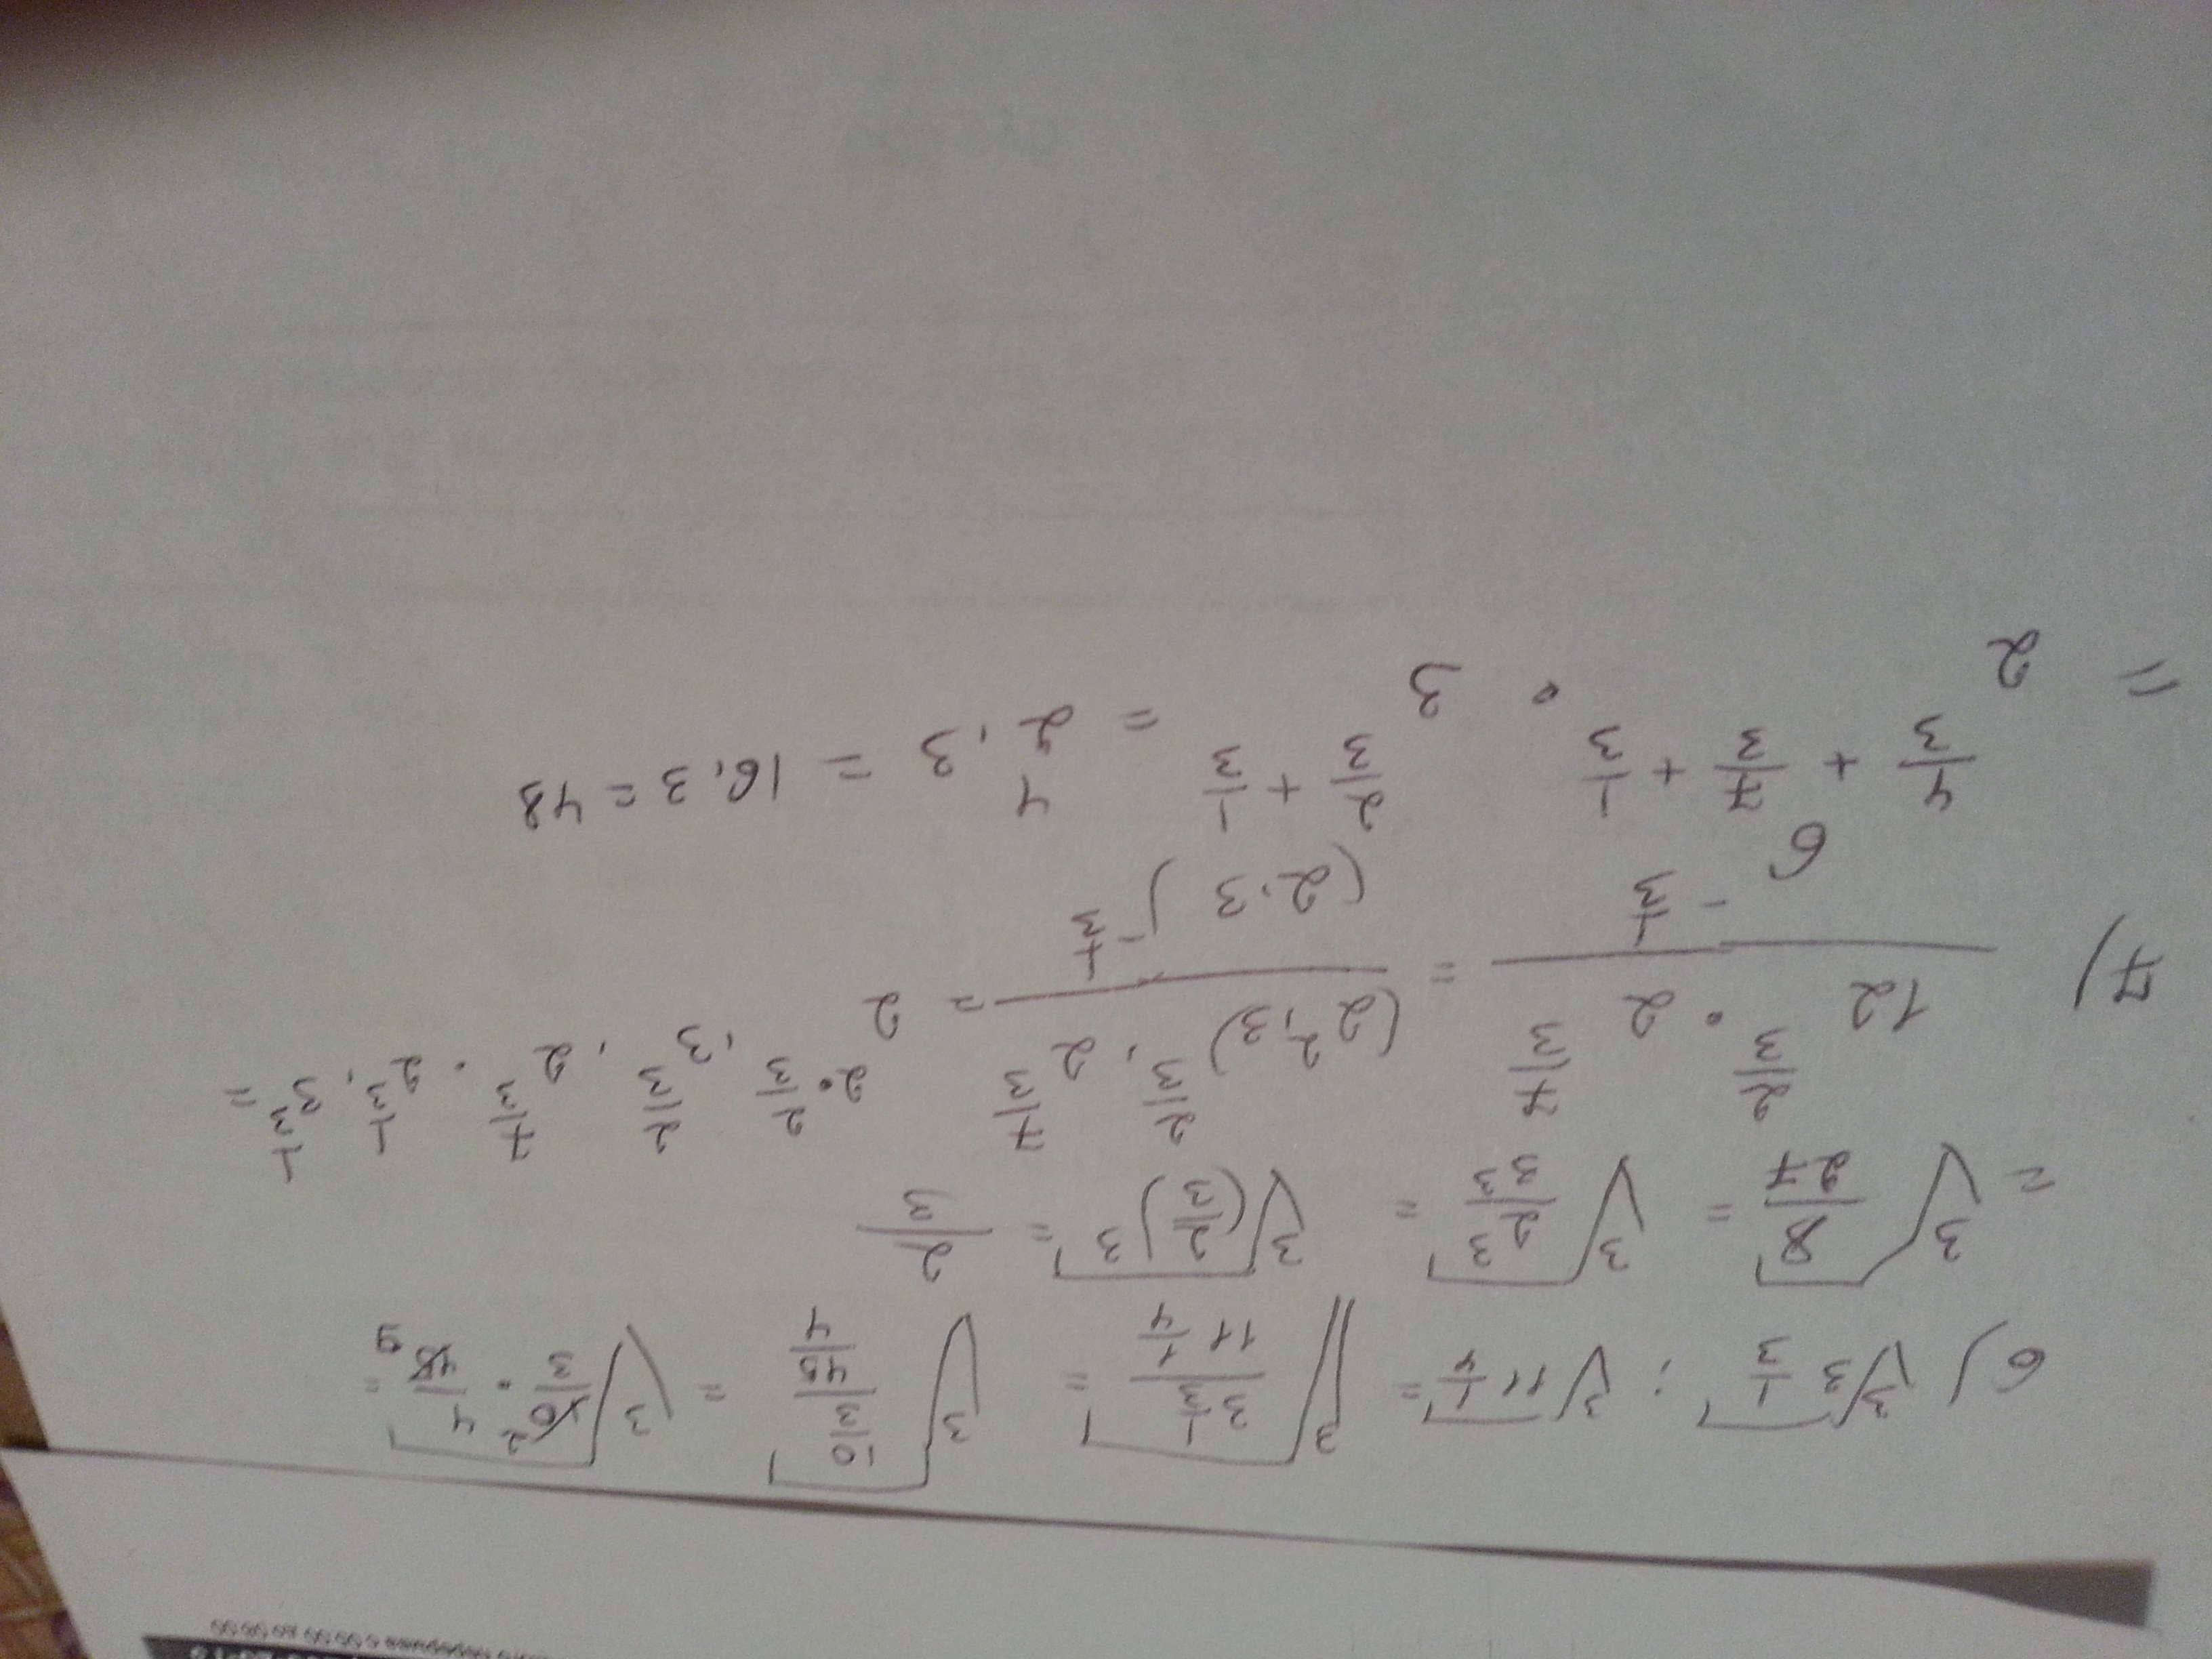 6) ∛(3 1/3) : ∛(11 1/4) = ∛((3 1/3)/(11 1/4)) = ∛((10/3)/(45/4)) = ∛(10 2/3 · 4/45 9) =
= ∛(8/27) = ∛(2^3/3^3) = ∛((2/3)^3) = 2/3
7) (12^(2/3) · 2^(7/3))/(6^(-1/3)) = ((2^2·3)^(2/3) · 2^(7/3))/((2·3)^(-1/3)) = 2^(2·2/3) · 3^(2/3) · 2^(7/3) · 2^(1/3) · 3^(1/3) =
= 2^(4/3 + 7/3 + 1/3) · 3^(2/3 + 1/3) = 2^4 · 3 = 16·3 = 48